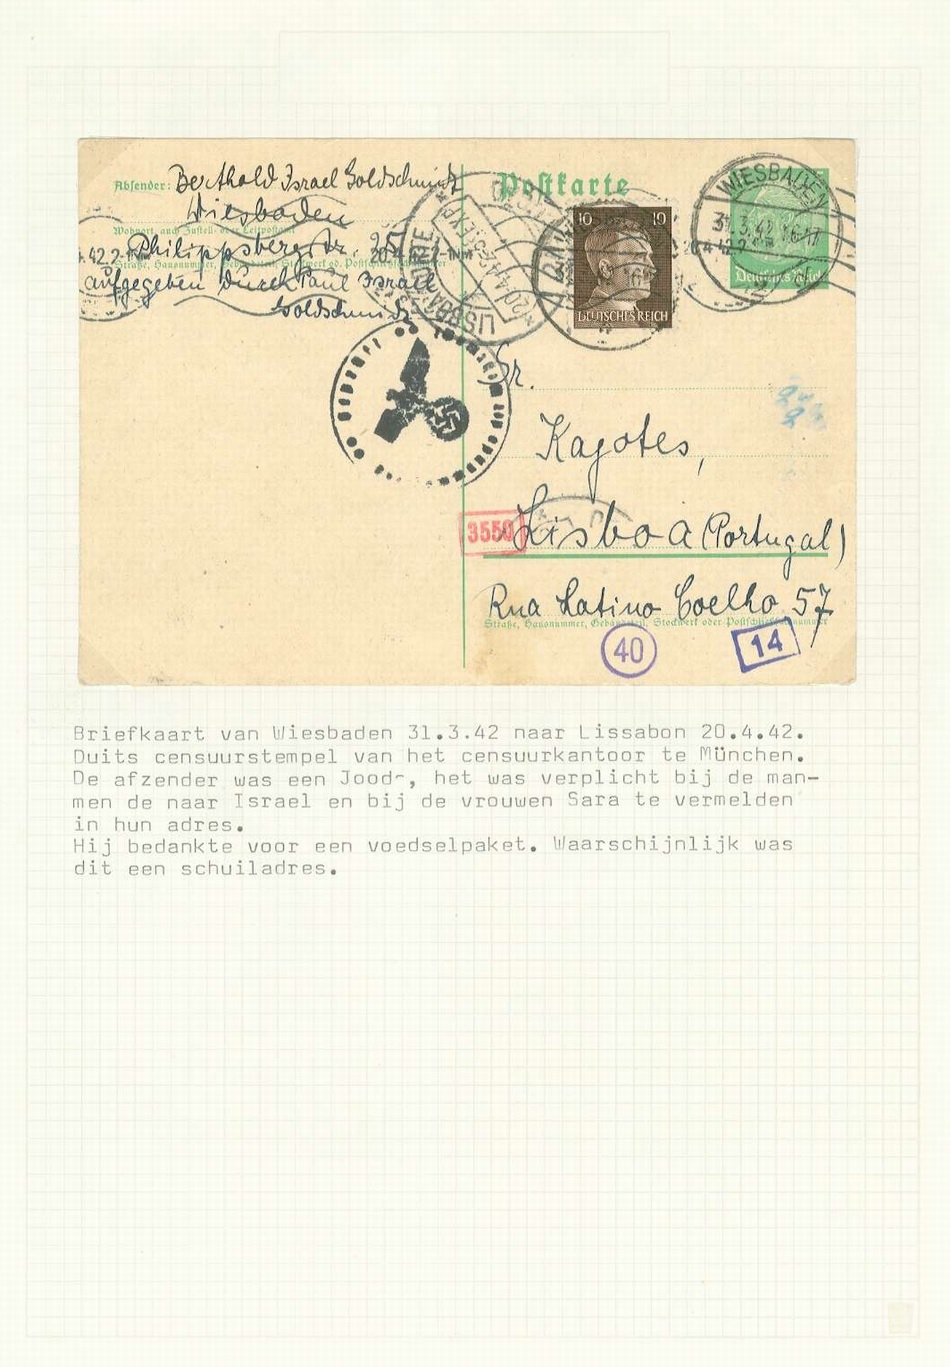 Absender: Berthold Israel Goldschmidt
Postkarte
WIESBADEN
31.3.42 16-17
Wiesbaden
Wohnort, auch Zustell- oder Leitpostamt
Philippsbergstr.
Straße, Hausnummer, Gebäudeteil, Stockwerk od. Postschließfachnummer
aufgegeben durch Paul Israel
Goldschmidt
10 10
DEUTSCHES REICH
Deutsches Reich
Sr.
Kagotes,
3550
Lisboa (Portugal)
Rua Latino Coelho 57
Straße, Hausnummer, Gebäudeteil, Stockwerk oder Postschließfachnummer
40
14
Briefkaart van Wiesbaden 31.3.42 naar Lissabon 20.4.42.
Duits censuurstempel van het censuurkantoor te München.
De afzender was een Jood-, het was verplicht bij de man-
men de naar Israel en bij de vrouwen Sara te vermelden
in hun adres.
Hij bedankte voor een voedselpaket. Waarschijnlijk was
dit een schuiladres.